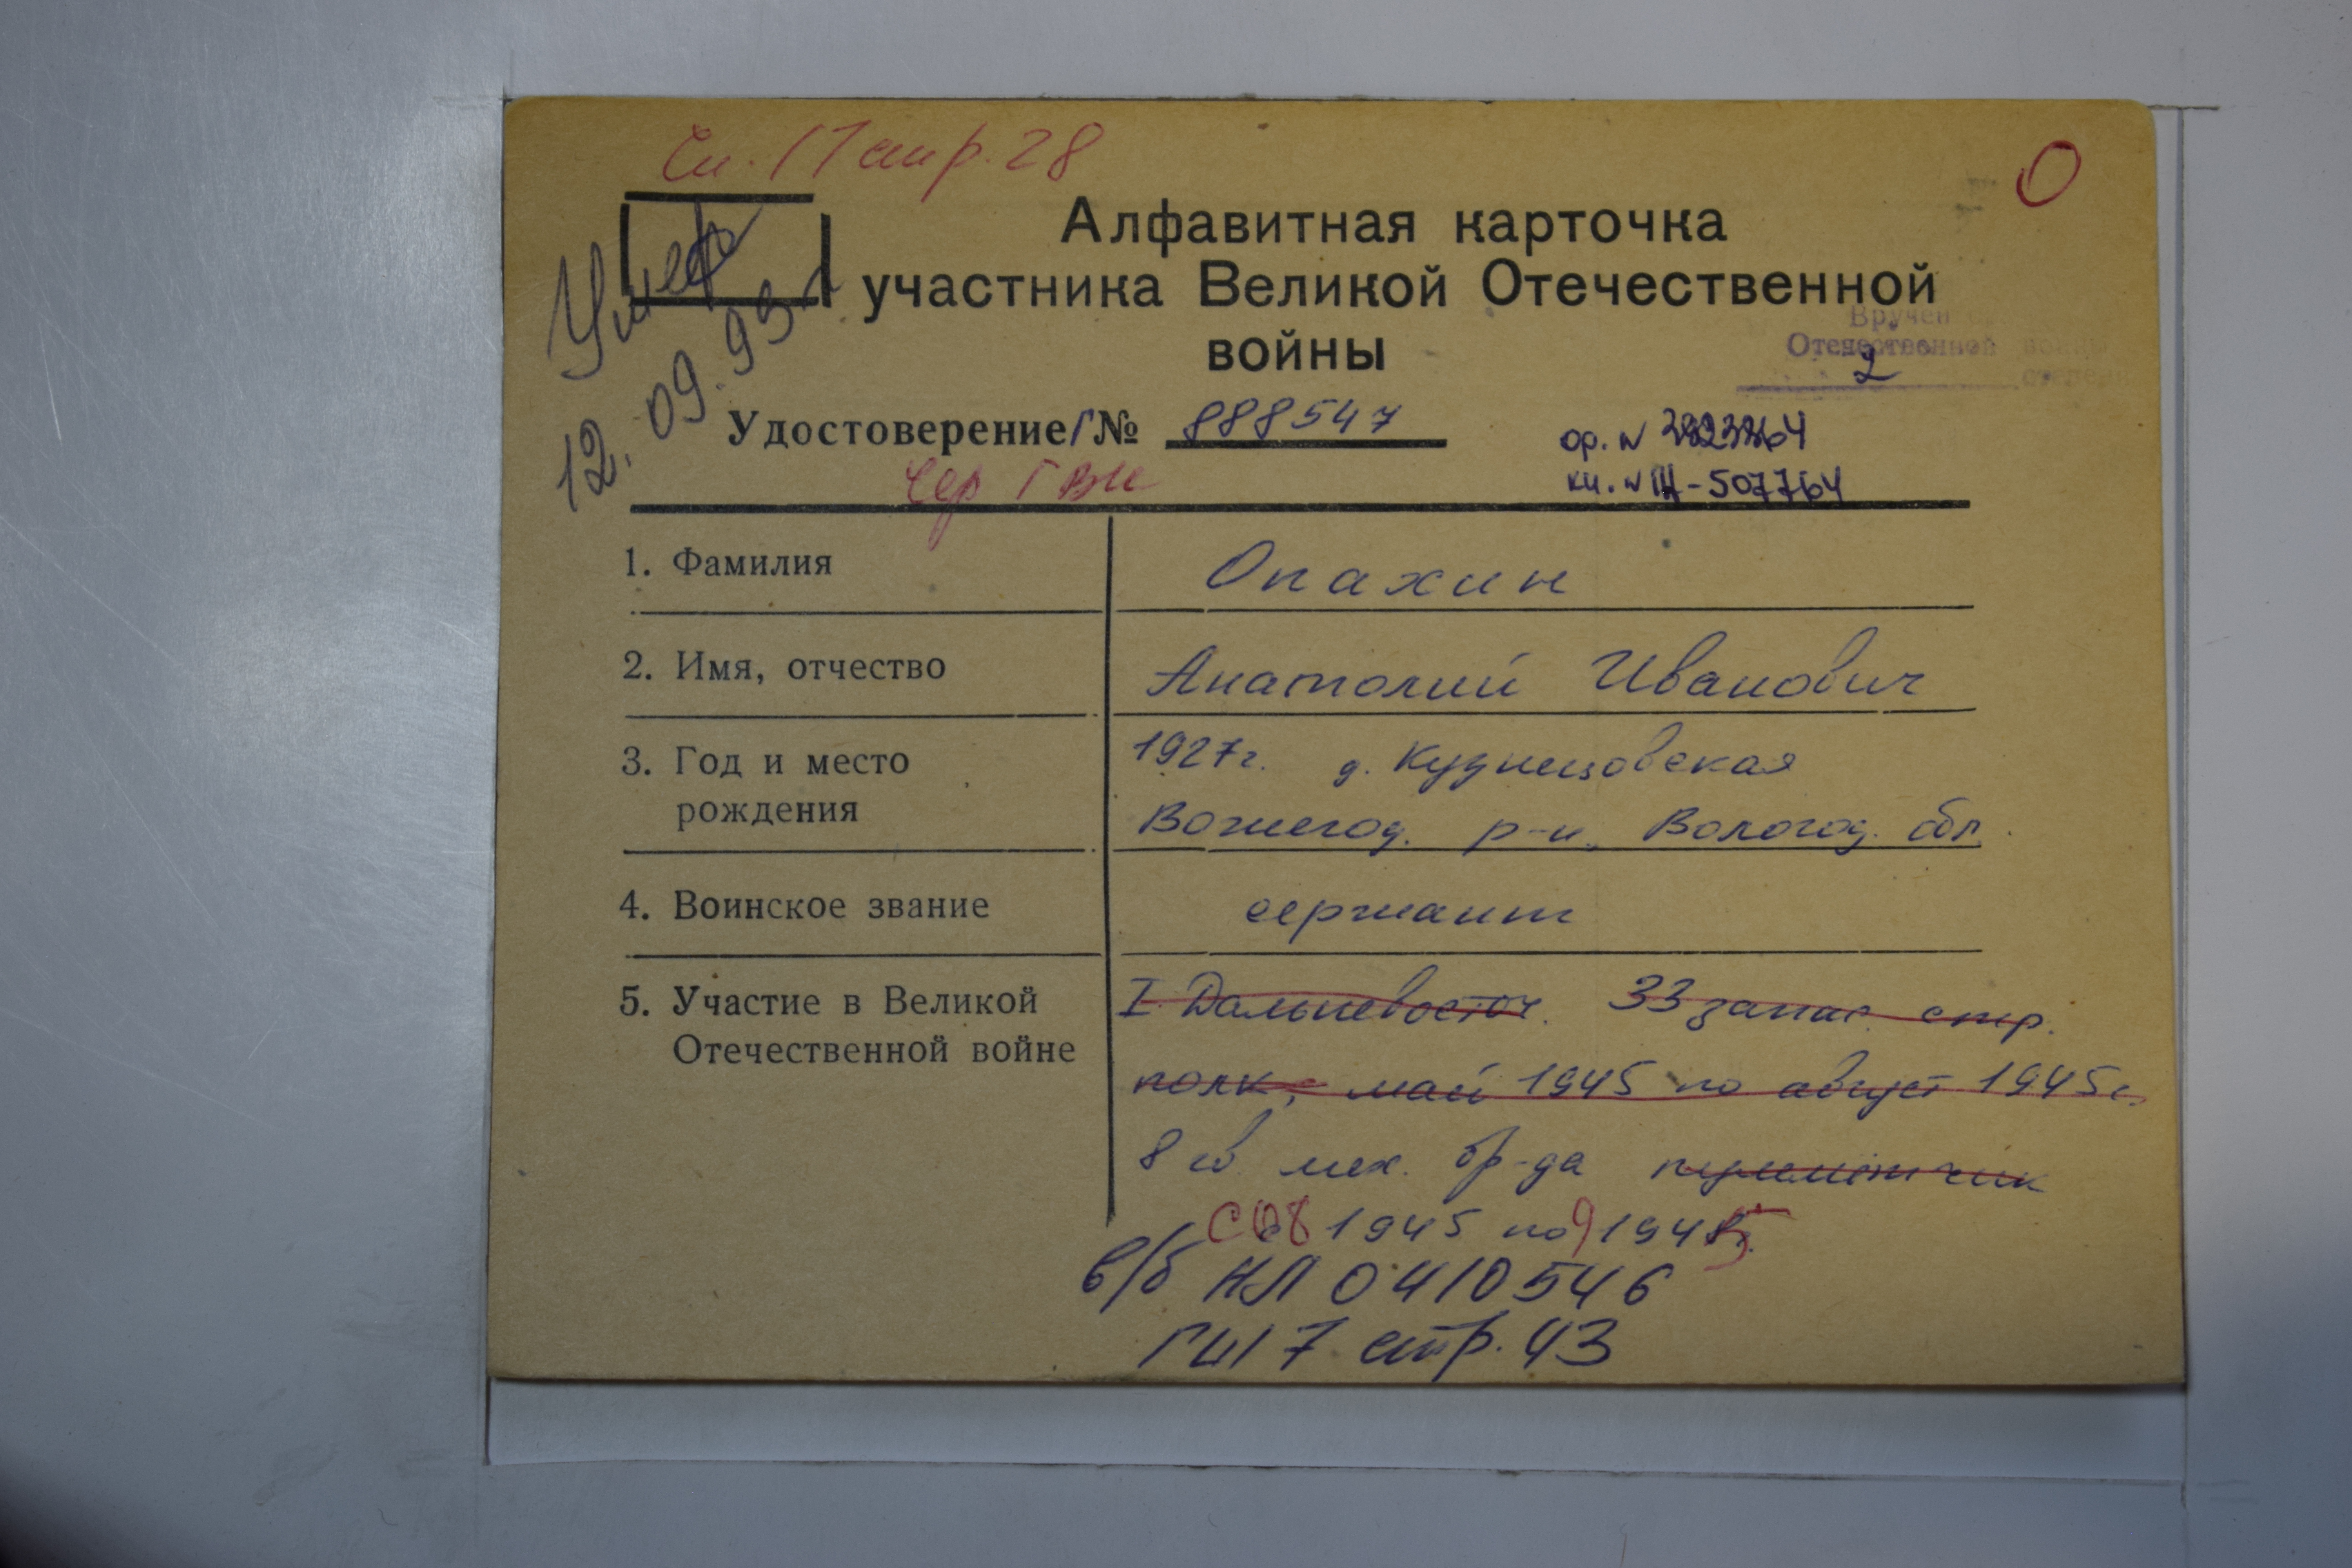 Сп. 17 стр. 28
О
Умер
12.09.95 г
Алфавитная карточка
участника Великой Отечественной
войны
Вручен
Отечественной войны
2 степени
Удостоверение Г № 888547
Сер Г ВК
ор. №
кн. № 507764
1. Фамилия
Опахин
2. Имя, отчество
Анатолий Иванович
3. Год и место
рождения
1927г. д. Кузнецовская
Вожегод. р-н, Вологод. обл.
4. Воинское звание
сержант
5. Участие в Великой
Отечественной войне
I Дальневосточ. 33 запас. стр.
полк, май 1945 по август 1945г.
8 гв. мех. бр-да пулемётчик
С 08 1945 по 9 1945
в/б НЛ 0410546
стр. 43